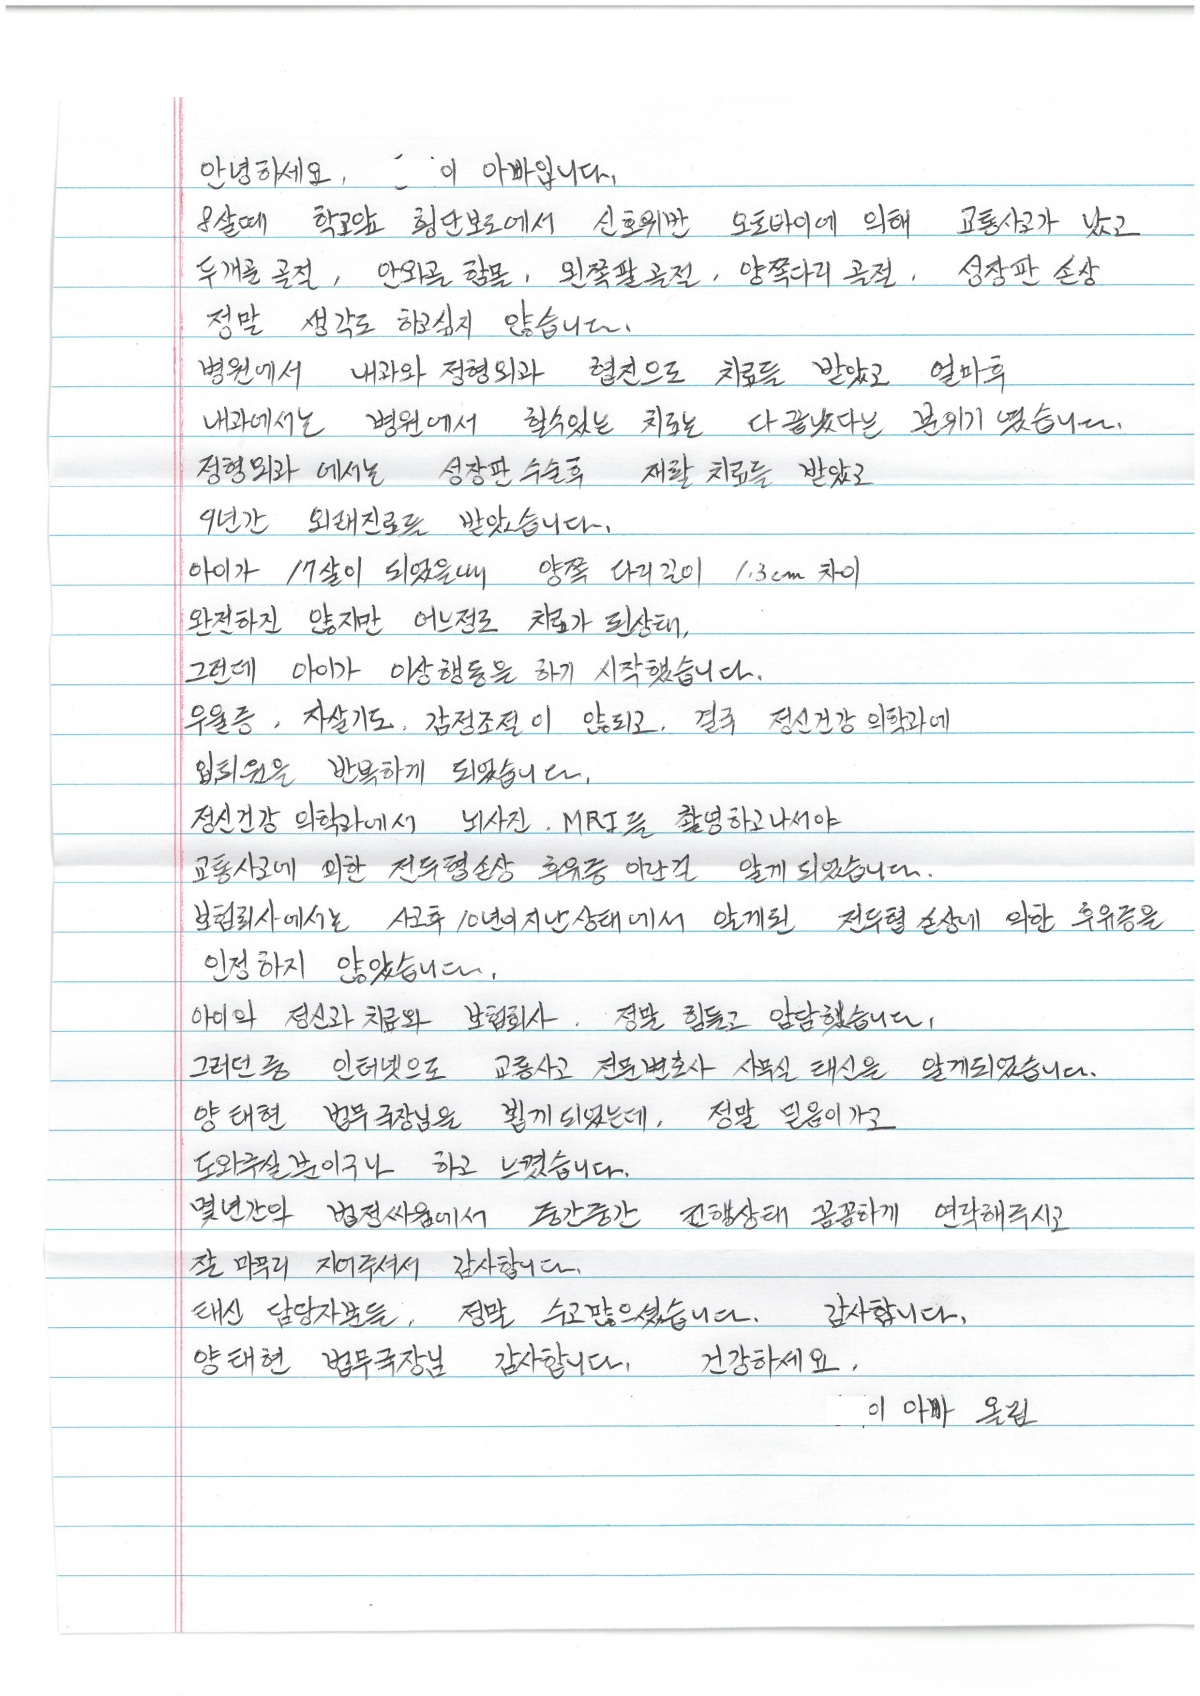 안녕하세요, 이 아빠입니다.
8살때 학교앞 횡단보도에서 신호위반 오토바이에 의해 교통사고가 났고
두개골 골절, 안와골 함몰, 왼쪽팔 골절, 양쪽다리 골절, 성장판 손상
정말 생각도 하고싶지 않습니다.
병원에서 내과와 정형외과 협진으로 치료를 받았고 얼마후
내과에서는 병원에서 할수있는 치료는 다 끝났다는 분위기 였습니다.
정형외과 에서는 성장판 수술후 재활 치료를 받았고
9년간 외래진료를 받았습니다.
아이가 17살이 되었을때 양쪽 다리길이 1.3cm 차이
완전하진 않지만 어느정도 치료가 된상태,
그런데 아이가 이상행동을 하기 시작했습니다.
우울증, 자살기도, 감정조절이 않되고, 결국 정신건강 의학과에
입퇴원을 반복하게 되었습니다.
정신건강 의학과에서 뇌사진. MRI를 촬영하고나서야
교통사고에 의한 전두엽손상 후유증 이란걸 알게되었습니다.
보험회사에서는 사고후 10년이지난상태에서 알게된 전두엽 손상에 의한 후유증을
인정하지 않았습니다.
아이의 정신과 치료와 보험회사. 정말 힘들고 암담했습니다.
그러던중 인터넷으로 교통사고 전문변호사 사무실 태신을 알게되었습니다.
양태현 법무국장님을 뵙게되었는데, 정말 믿음이가고
도와주실분이구나 하고 느꼈습니다.
몇년간의 법정싸움에서 중간중간 진행상태 꼼꼼하게 연락해주시고
잘 마무리 지어주셔서 감사합니다.
태신 담당자분들, 정말 수고많으셨습니다. 감사합니다.
양태현 법무국장님 감사합니다. 건강하세요.
이 아빠 올림